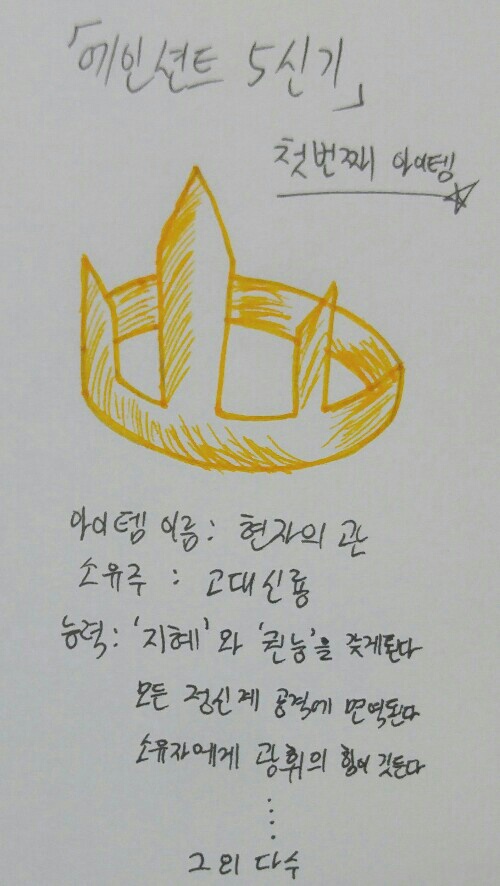 「에인션트 5신기」
첫번째 아이템
아이템 이름: 현자의 관
소유주 : 고대신룡
능력: '지혜'와 '권능'을 갖게된다
모든 정신계 공격에 면역된다
소유자에게 광휘의 힘이 깃든다
......
그외 다수